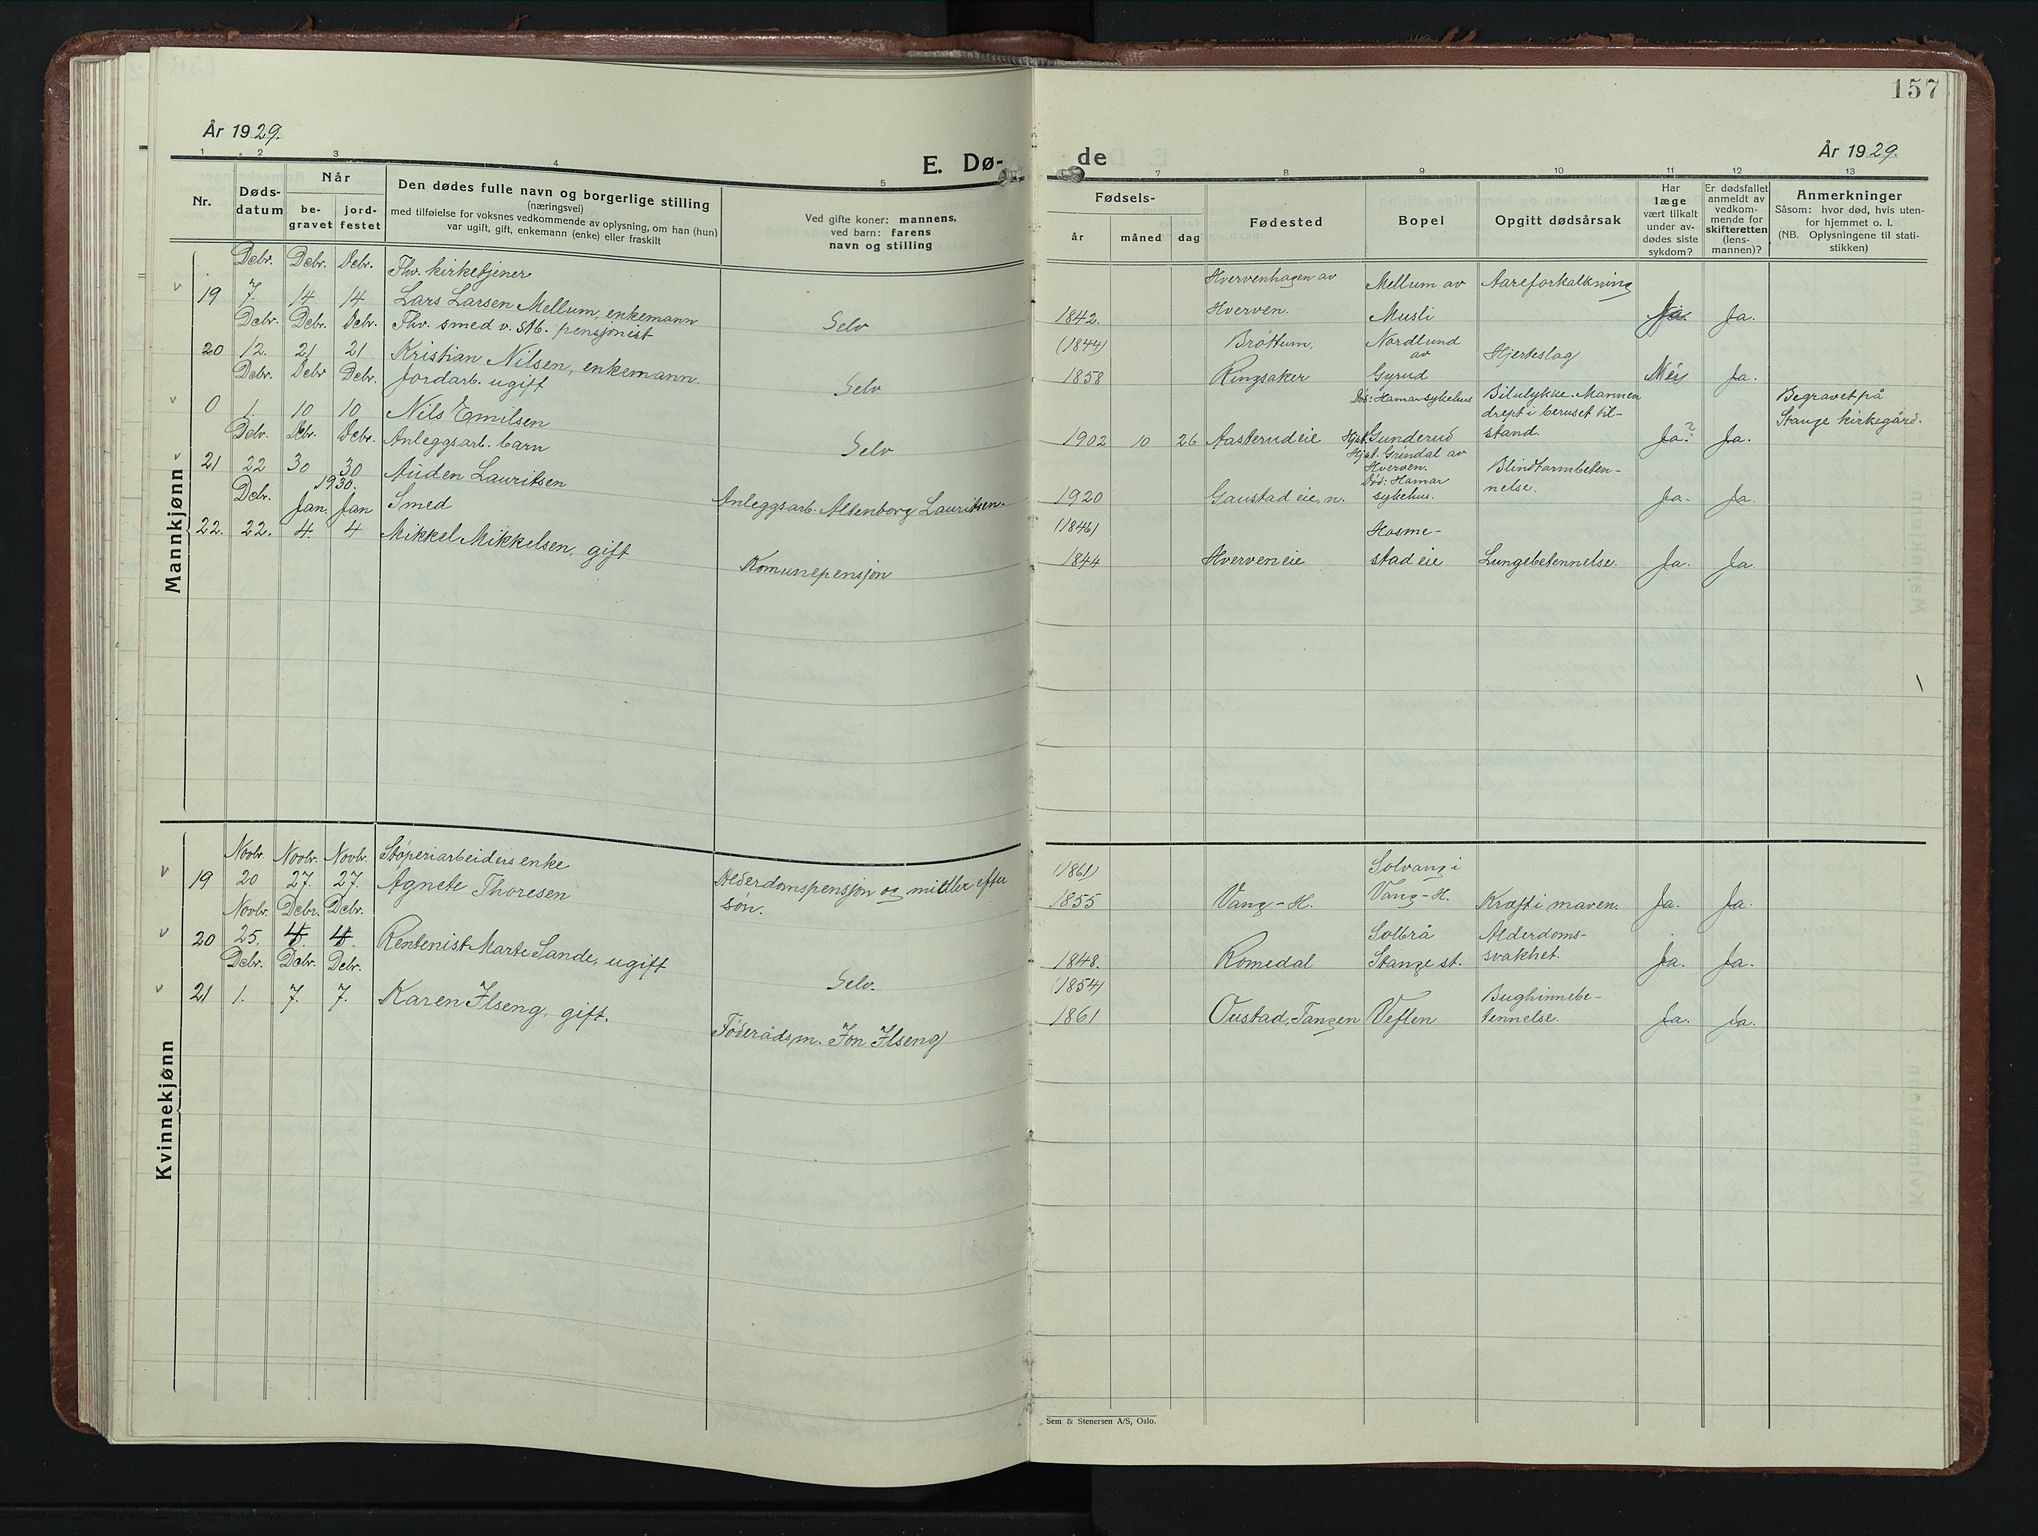 157
År 1929.
E. Dø-
de
År 1929.
1 2 3 4 5 7 8 9 10 11 12 13
Nr.
Døds-
datum
Når
be-
gravet
jord-
festet
Den dødes fulle navn og borgerlige stilling
(næringsvei)
med tilføielse for voksnes vedkommende av oplysning, om han (hun)
var ugift, gift, enkemann (enke) eller fraskilt
Ved gifte koner: mannens,
ved barn: farens
navn og stilling
Fødsels-
år måned dag
Fødested
Bopel
Opgitt dødsårsak
Har
læge
vært tilkalt
under av-
dødes siste
sykdom?
Er dødsfallet
anmeldt av
vedkom-
mende for
skifteretten
(lens-
mannen)?
Anmerkninger
Såsom: hvor død, hvis uten-
for hjemmet o. l.
(NB. Oplysningene til stati-
stikken)
Mannkjønn
Debr. Debr. Debr. Fhv. kirketjener Hvervenhagen av Mellum av Aareforkalkning
19 7. 14 14 Lars Larsen Mellum, enkemann Selv 1842. Hverven. Musli Ja. Ja.
Debr. Debr. Debr. Fhv. smed v. Stb. pensjonist (1844) Brøttum, Nordlund av Hjerteslag
20 12. 21 21 Kristian Nilsen, enkemann. Selv 1858 Ringsaker Gyrud Nei Ja.
Debr. Debr Debr. Jordarb. ugift Død: Hamar sykehus Bilulykke. Mannen Begravet på
drept i beruset til- Stange kirkegård.
0 1. 10 10 Nils Emilsen Selv 1902 10 26 Aasterudeie Hjst. Gunderud stand. Ja? Ja.
Debr. Debr. Debr. Anleggsarb. barn Hjst. Grindal av Hverven. Blindtarmbeten-
21 22 30 30 Auden Lauritsen Anleggsarb. Altenborg Lauritsen. 1920 Gaustadeie, n. Død: Hamar sykehus. nelse. Ja. Ja.
1930.
Debr. Jan. Jan Smed (1846) Hosme-
22. 22. 4. 4 Mikkel Mikkelsen, gift Komunepensjon 1844 Hverveneie stadeie Lungebetennelse. Ja. Ja.
Kvinnekjønn
Novbr. Novbr. Novbr. Støperiarbeiders enke (1861) Solvang i
19 20 27. 27. Agnete Thoresen Alderdomspensjon og midler efter
søn. 1855 Vang-H. Vang-H. Kræft i maven. Ja. Ja.
Novbr. Debr. Debr. Solbrå Alderdoms-
20 25. 4. 4. Rentenist Marte Sande, ugift Selv. 1848. Romedal Stange st. svakhet. Ja. Ja.
Debr. Debr. Debr. (1854) Bughinnebe-
21 1. 7. 7. Karen Ilseng, gift. Føderådsm. Jon Ilseng 1861 Oustad, Tangen Veflen tennelse. Ja. Ja.
Sem & Stenersen A/S, Oslo.